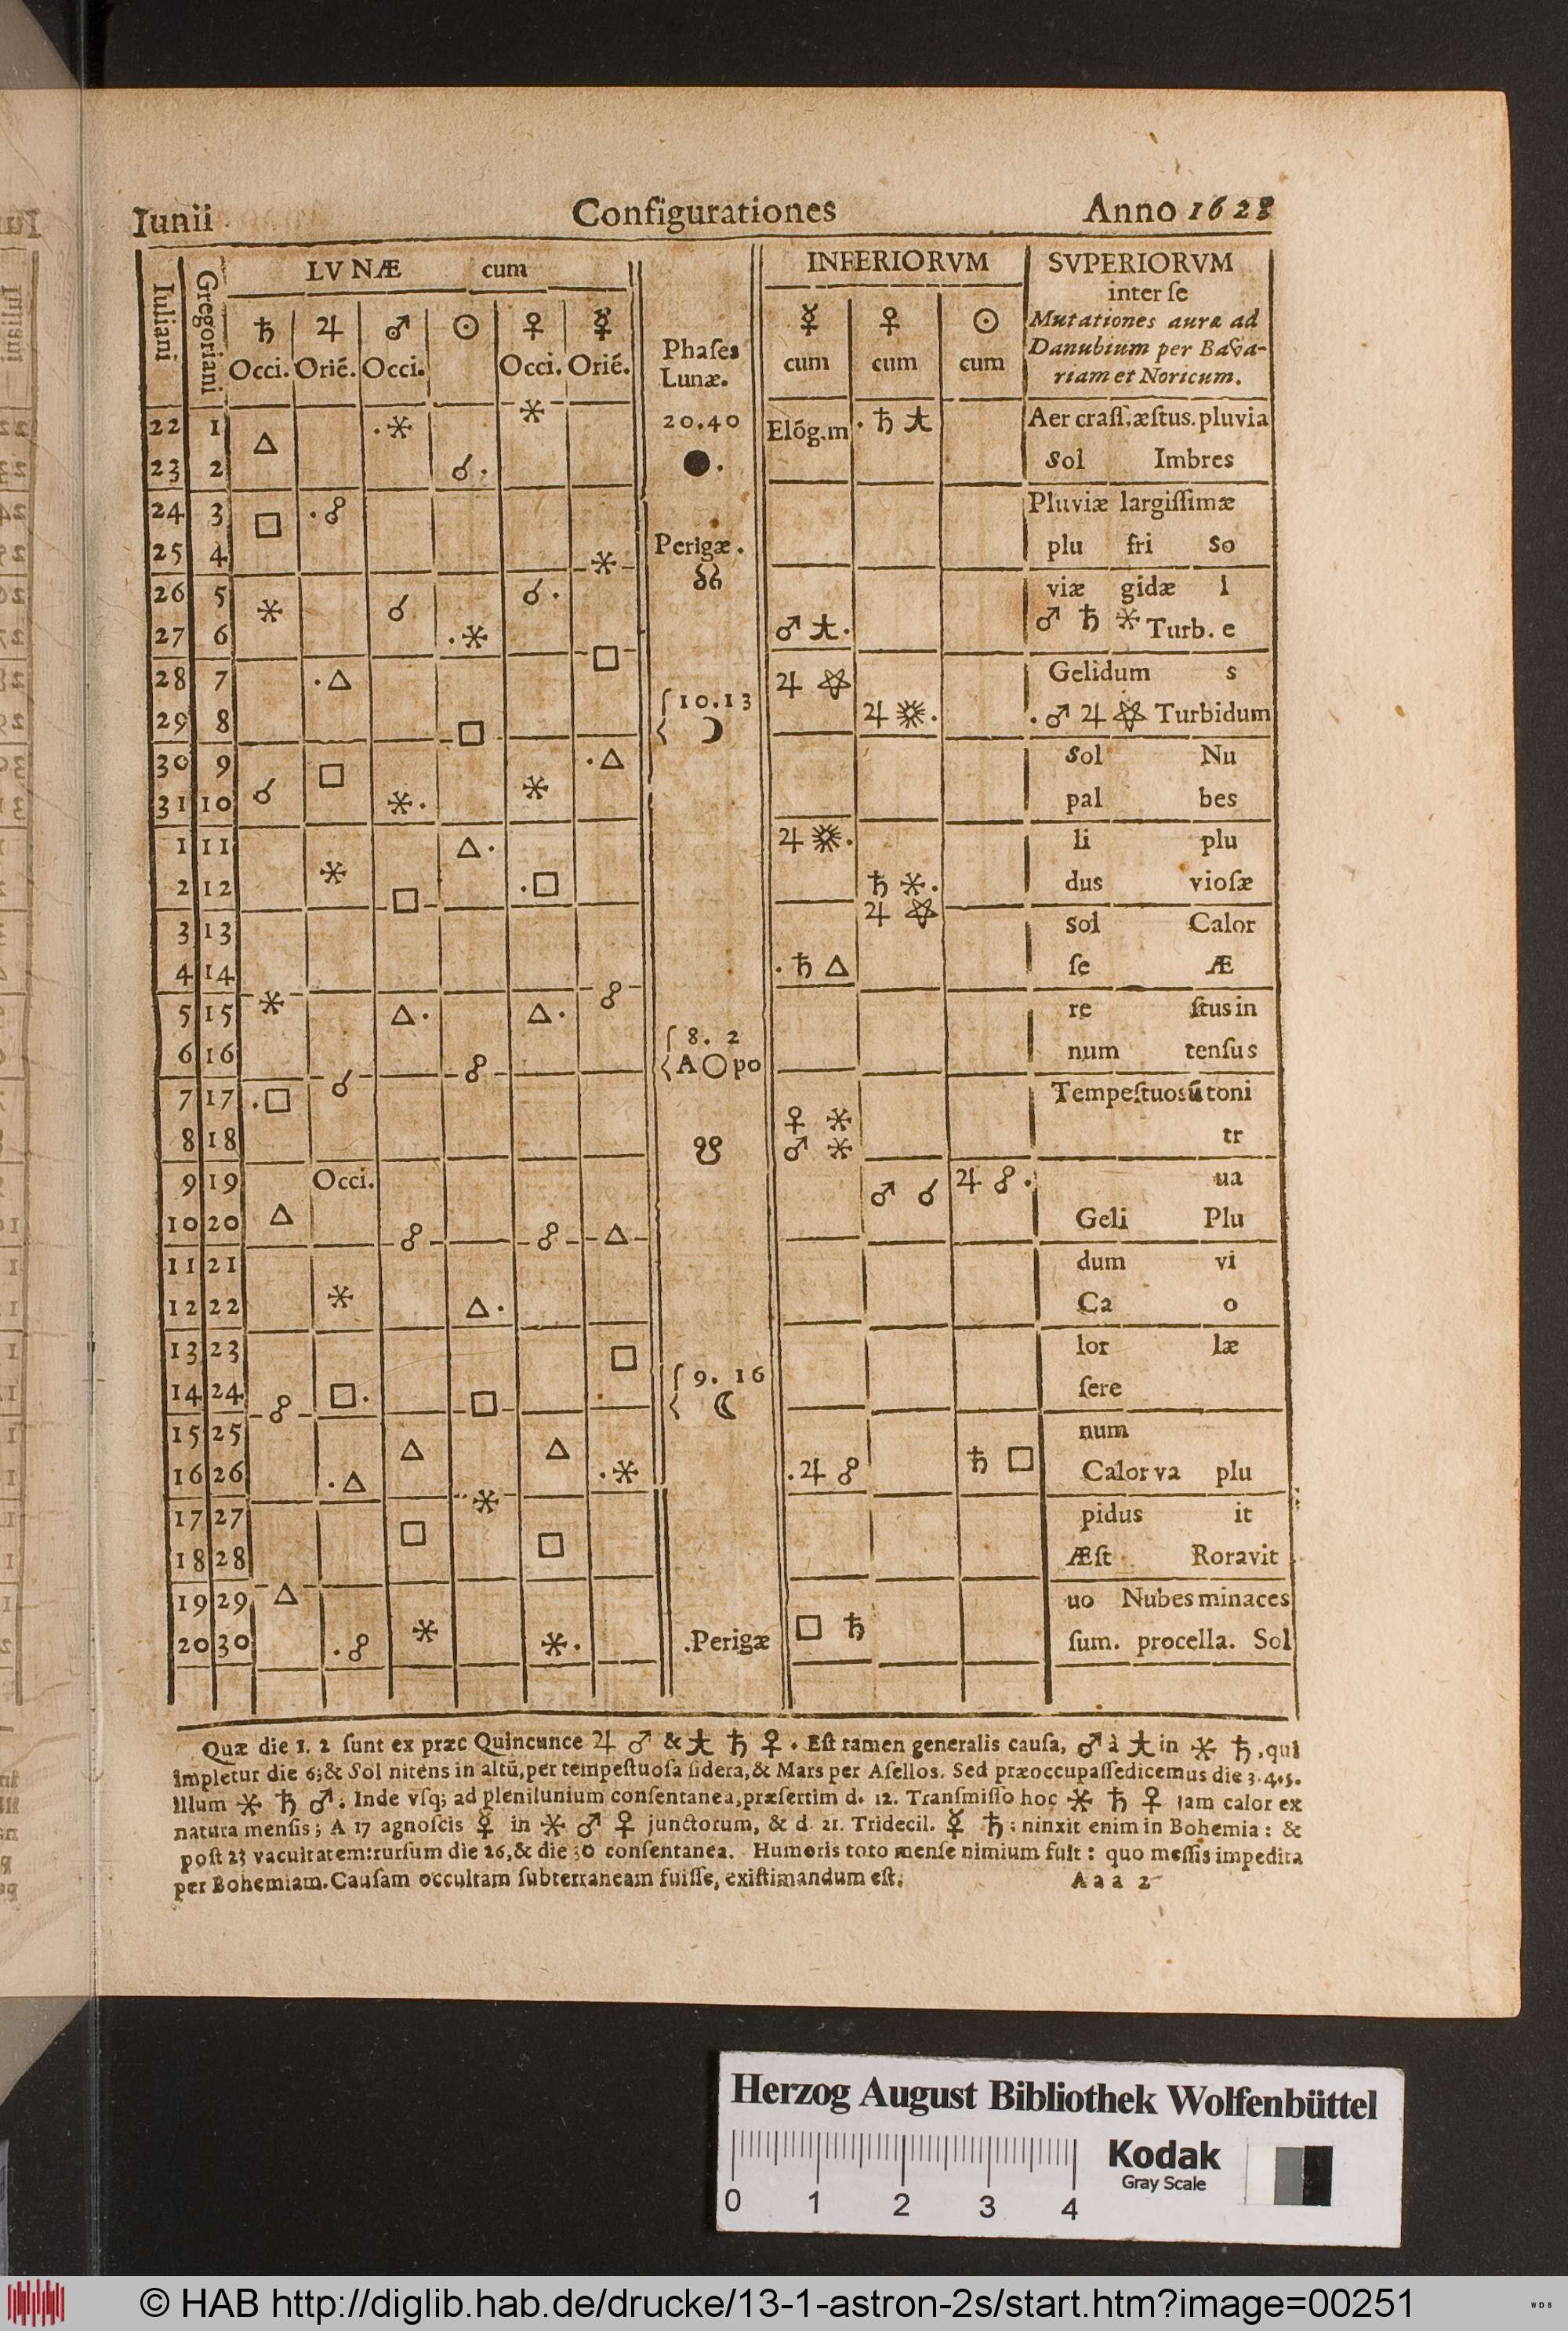 Iunii Configurationes Anno 1628
Iuliani Gregoriani LVNÆ cum Phaſes Lunæ. INFERIORVM SVPERIORVM
inter ſe
♄ ♃ ♂ ☉ ♀ ☿ ☿ ♀ ☉ Mutationes auræ ad
Danubium per Bava-
Occi. Orié. Occi. Occi. Orié. cum cum cum riam et Noricum.
22 1 △ .⚹ ⚹ 20.40 Elõg.m . ♄ Aer craſſ.æſtus.pluvia
23 2 ☌. ●. Sol Imbres
24 3 □ .☍ Pluviæ largiſſimæ
25 4 ⚹ Perigæ. plu fri So
26 5 ⚹ ☌ ☌. ☊ viæ gidæ l
27 6 .⚹ ♂ ♂ ♄ ⚹ Turb. e
28 7 .△ □ ♃ ⛤ Gelidum s
29 8 □ 10.13 ☽ ♃ . .♂ ♃ ⛤ Turbidum
30 9 □ .△ Sol Nu
31 10 ☌ ⚹. ⚹ pal bes
1 11 △. ♃ . li plu
2 12 ⚹ □ .□ ♄ ⚹. ♃ ⛤ dus vioſæ
3 13 sol Calor
4 14 . ♄ △ ſe Æ
5 15 ⚹ △. △. ☍ re ſtus in
6 16 ☍ 8. 2 A○po num tenſus
7 17 .□ ☌ ♀ ⚹ Tempeſtuosũ toni
8 18 ☋ ♂ ⚹ tr
9 19 Occi. ♂ ☌ ♃ ☍. ua
10 20 △ ☍ ☍ △ Geli Plu
11 21 dum vi
12 22 ⚹ △. Ca o
13 23 □ lor læ
14 24 ☍ □. □ 9. 16 ☾ ſere
15 25 △ △ num
16 26 .△ .⚹ .♃ ☍ ♄ □ Calor va plu
17 27 □ ⚹ □ pidus it
18 28 Æſt Roravit
19 29 △ uo Nubes minaces
20 30 .☍ ⚹ ⚹. .Perigæ □ ♄ ſum. procella. Sol
Quæ die 1. 2 ſunt ex præc Quincunce ♃ ♂ & ♄ ♀. Eſt tamen generalis cauſa, ♂ à in ⚹ ♄, qui
impletur die 6; & Sol nitens in altũ, per tempeſtuoſa ſidera, & Mars per Aſellos. Sed præoccupaſſe dicemus die 3.4.5.
illum ⚹ ♄ ♂. Inde vſq; ad plenilunium conſentanea, præſertim d. 12. Tranſmiſſo hoc ⚹ ♄ ♀ jam calor ex
natura menſis; A 17 agnoſcis ☿ in ⚹ ♂ ♀ junctorum, & d. 21. Tridecil. ☿ ♄: ninxit enim in Bohemia: &
poſt 23 vacuitatem: rurſum die 26, & die 30 conſentanea. Humoris toto menſe nimium fuit: quo meſſis impedita
per Bohemiam. Cauſam occultam ſubterraneam fuiſſe, exiſtimandum eſt. Aaa 2
Herzog August Bibliothek Wolfenbüttel
Kodak
Gray Scale
0 1 2 3 4
© HAB http://diglib.hab.de/drucke/13-1-astron-2s/start.htm?image=00251
WDB